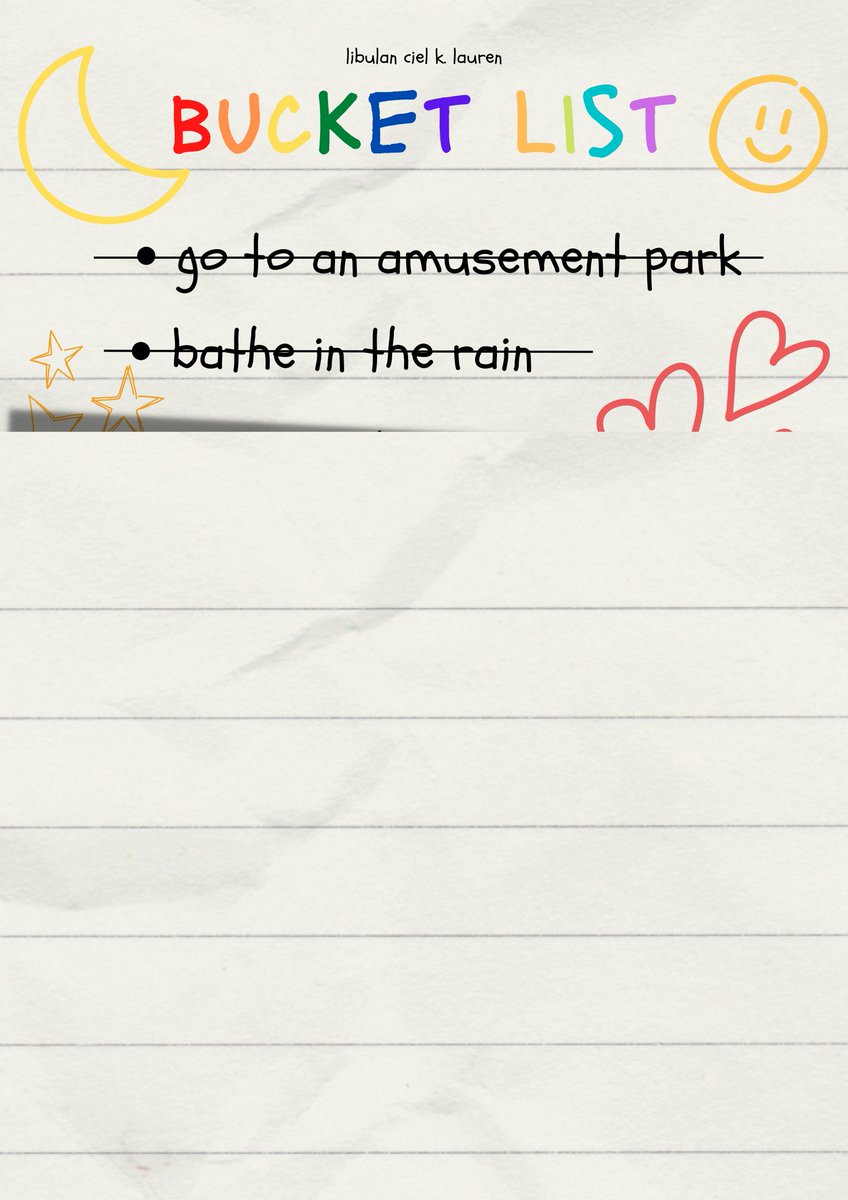 libulan ciel k. lauren
BUCKET LIST
• go to an amusement park
• bathe in the rain